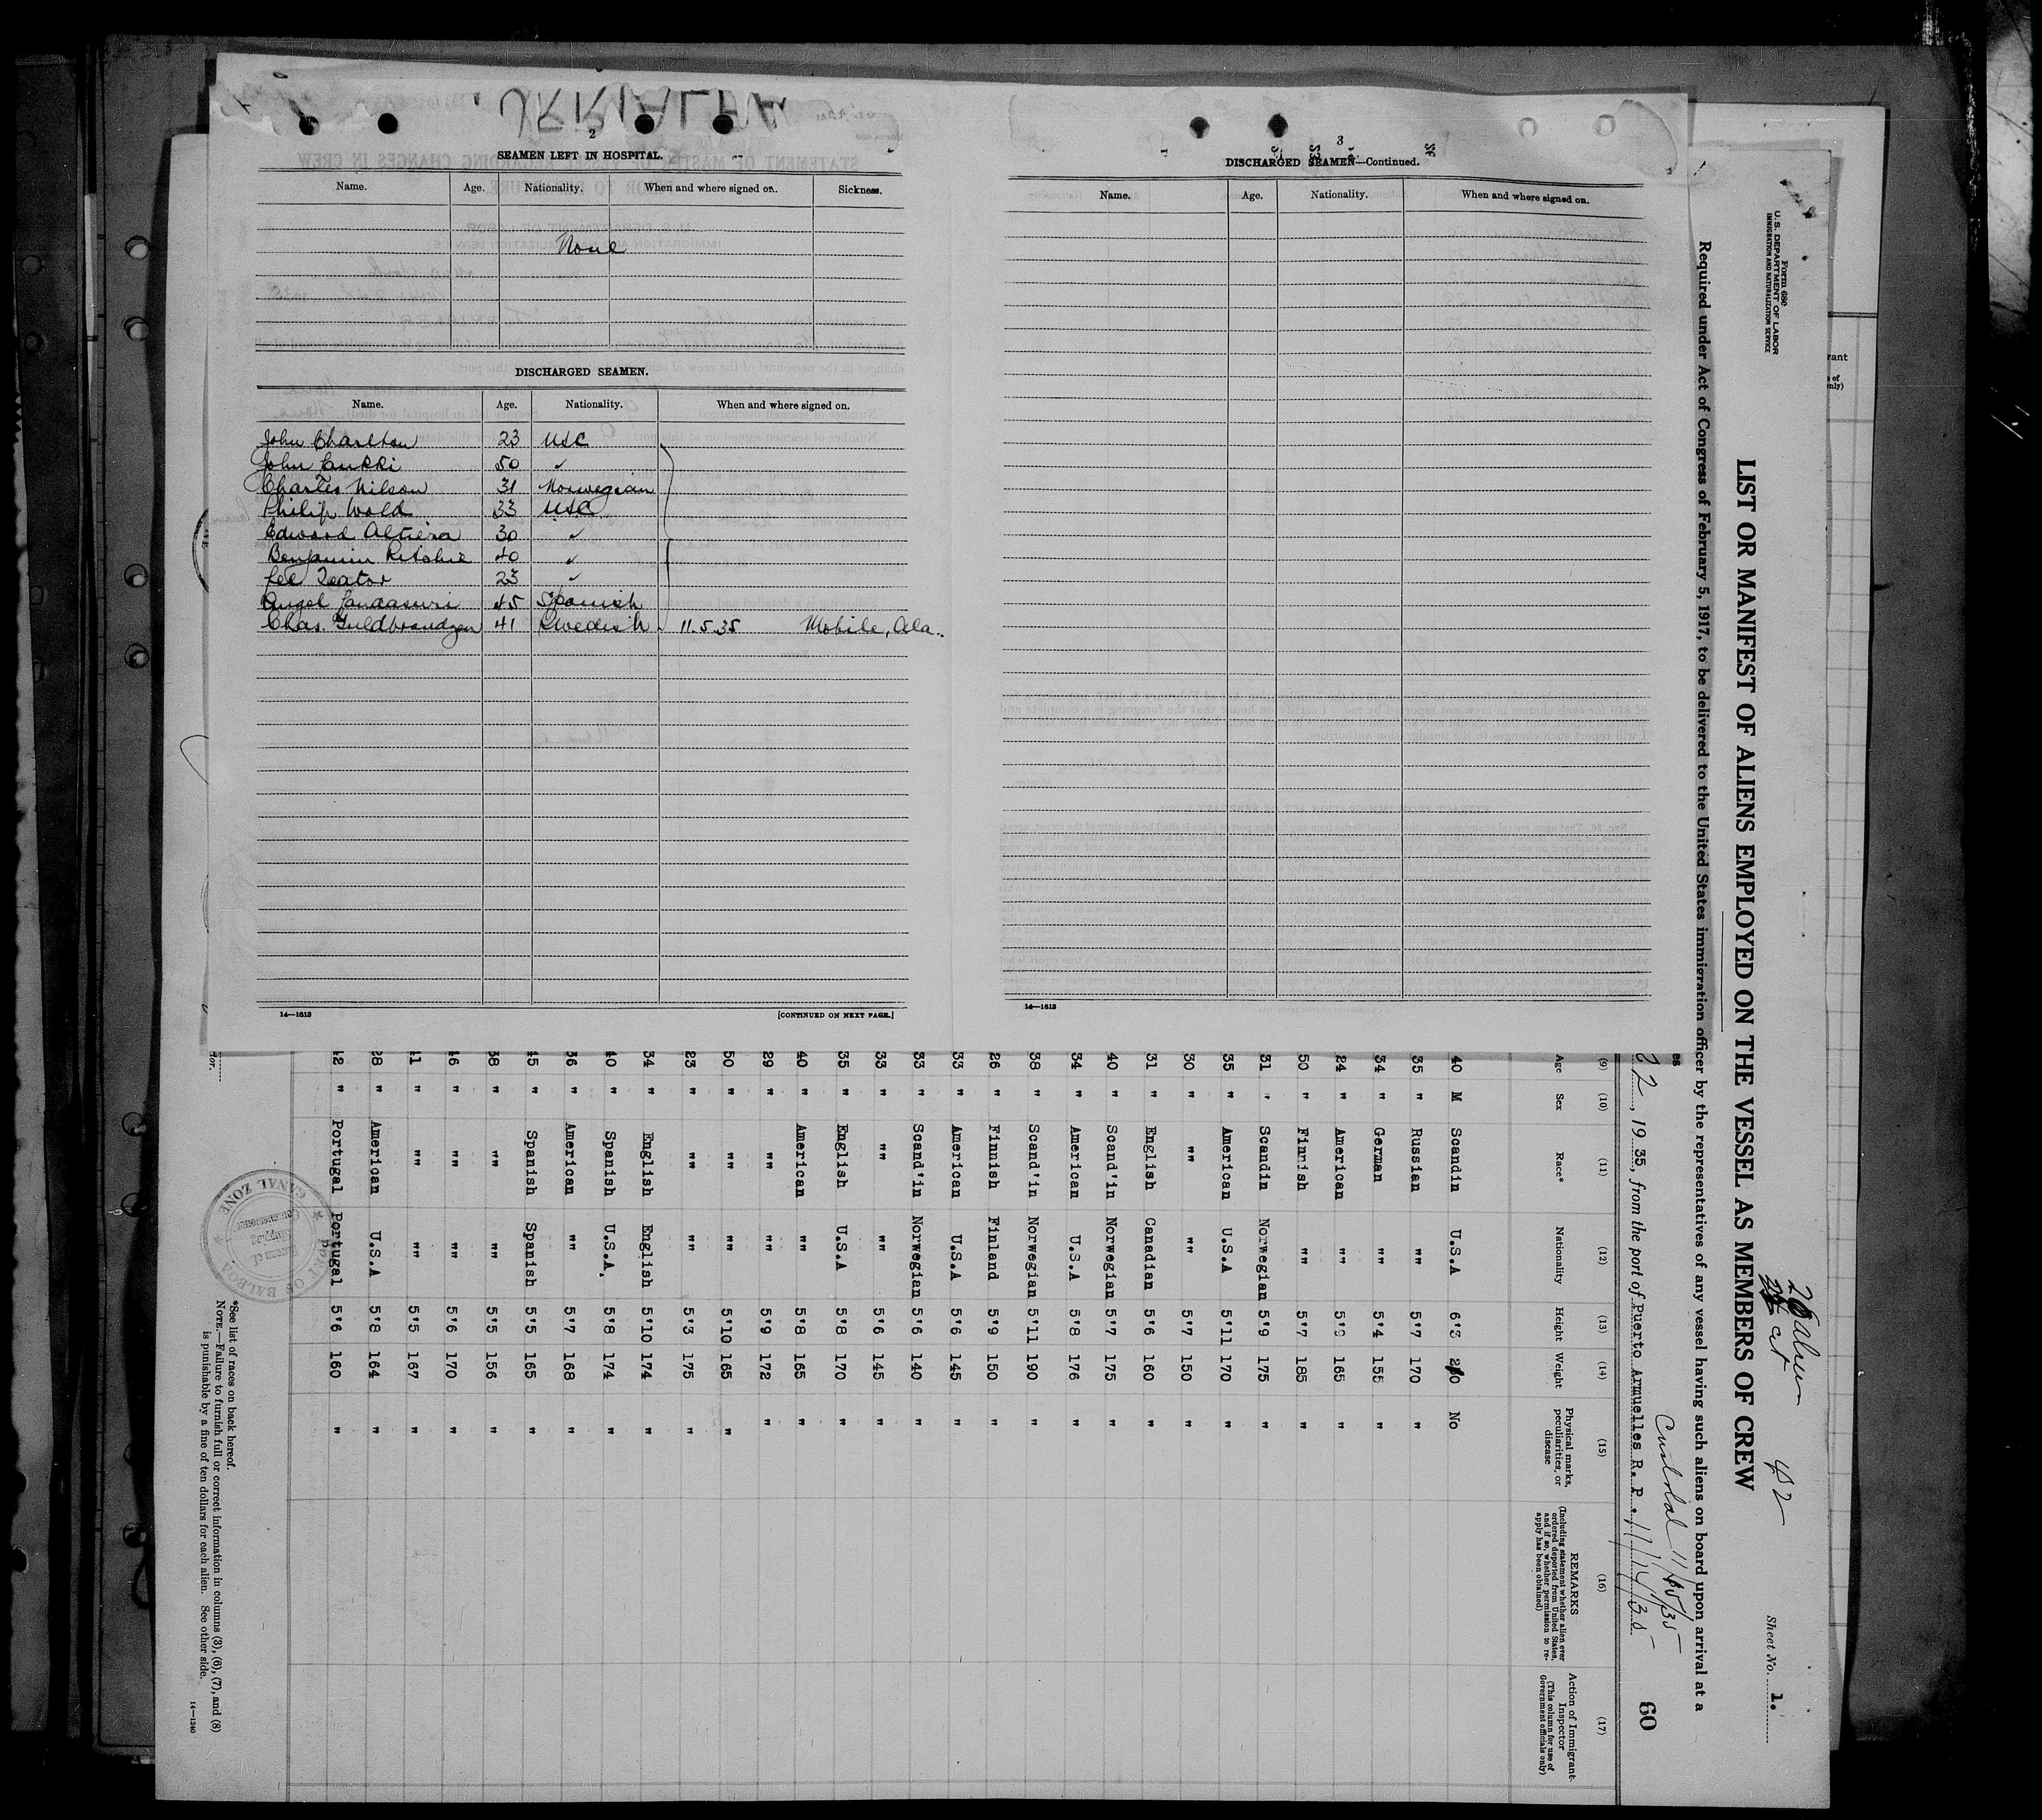 2
SEAMEN LEFT IN HOSPITAL.
Name. Age. Nationality. When and where signed on. Sickness.
None
DISCHARGED SEAMEN.
Name. Age. Nationality. When and where signed on.
John Charlton 23 USC
John Laukki 50 "
Charles Nilson 31 Norwegian
Philip Wold 33 USC
Edward Altiera 30 "
Benjamin Ritchie 40 "
Lee Teator 23 "
Angel 45 Spanish
Chas. Guldbrandzen 41 Swedish 11.5.35 Mobile, Ala.
14—1613 [CONTINUED ON NEXT PAGE.]
3
DISCHARGED SEAMEN—Continued.
Name. Age. Nationality. When and where signed on.
14—1613
Form 680
U.S. DEPARTMENT OF LABOR
IMMIGRATION AND NATURALIZATION SERVICE
Sheet No. 1.
42
LIST OR MANIFEST OF ALIENS EMPLOYED ON THE VESSEL AS MEMBERS OF CREW
Required under Act of Congress of February 5, 1917, to be delivered to the United States immigration officer by the representatives of any vessel having such aliens on board upon arrival at a
Cristobal 11/15/35
22, 1935, from the port of Puerto Armuelles R. P. 11/14/35
60
(9) (10) (11) (12) (13) (14) (15) (16) (17)
Age Sex Race* Nationality Height Weight Physical marks, peculiarities, or disease REMARKS (Including statement whether alien ever ordered deported from United States, and if so, whether permission to reapply has been obtained) Action of Immigrant Inspector (This column for use of Government officials only)
40 M Scandin U.S.A 6'3 210 No
35 " Russian "" 5'7 170 "
34 " German "" 5'4 155 "
24 " American "" 5'9 165 "
50 " Finnish "" 5'7 185 "
31 " Scandin Norwegian 5'9 175 "
35 " American U.S.A 5'11 170 "
30 " "" "" 5'7 150 "
31 " English Canadian 5'6 160 "
40 " Scand'in Norwegian 5'7 175 "
34 " American U.S.A 5'8 176 "
38 " Scand'in Norwegian 5'11 190 "
26 " Finnish Finland 5'9 150 "
33 " American U.S.A 5'6 145 "
33 " Scand'in Norwegian 5'6 140 "
33 " "" "" 5'6 145 "
35 " English U.S.A 5'8 170 "
40 " American "" 5'8 165 "
29 " "" "" 5'9 172 "
50 " "" "" 5'10 165 "
23 " "" "" 5'3 175 "
34 " English English 5'10 174 "
40 " Spanish U.S.A. 5'8 174 "
36 " American "" 5'7 168 "
45 " Spanish Spanish 5'5 165 "
38 " "" "" 5'5 156 "
46 " "" "" 5'6 170 "
41 " "" "" 5'5 167 "
28 " American U.S.A 5'8 164 "
42 " Portugal Portugal 5'6 160 "
PORT OF BALBOA
CANAL ZONE
Bureau of
Shipping
Commissioner
*See list of races on back hereof.
NOTE.—Failure to furnish full or correct information in columns (3), (6), (7), and (8)
is punishable by a fine of ten dollars for each alien. See other side.
14—1240